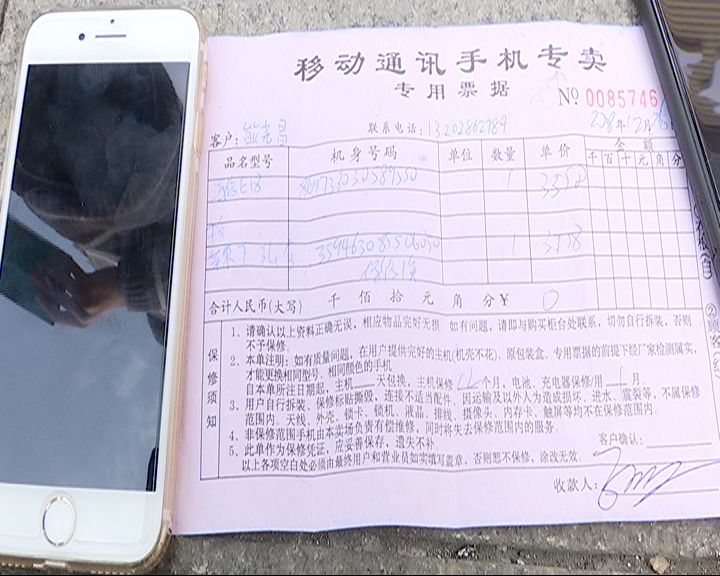 移动通讯手机专卖
专用票据
№ 0085746
客户: 熊光昌 联系电话: 13202862989
品名型号 机身号码 单位 数量 单价 金额
千 百 十 元 角 分
1 3558
换
1 3558
合计人民币(大写) 千 佰 拾 元 角 分 ¥ 0
保修须知
1、请确认以上资料正确无误,相应物品完好无损,如有问题,请即与购买柜台处联系,切勿自行拆装,否则
不予保修。
2、本单注明:如有质量问题,在用户提供完好的主机(机壳不花)、原包装盒、专用票据的前提下经厂家检测属实,
才能更换相同型号、相同颜色的手机
自本单所注日期起,主机 天包换,主机保修 12 个月,电池、充电器保修/用 1 月
3、用户自行拆装、保修标贴撕毁,连接不适当配件,因运输及以外人为造成损坏、进水、震裂等,不属保修
范围内。天线、外壳、锁卡、锁机、液晶、排线、摄像头、内存卡、触屏等均不在保修范围内。
4、非保修范围手机由本卖场负责有偿维修,同时将失去保修范围内的服务。
5、此单作为保修凭证,应妥善保存,遗失不补
以上各项空白处必须由最终用户和营业员如实填写盖章,否则恕不保修,涂改无效。
客户确认:
收款人: